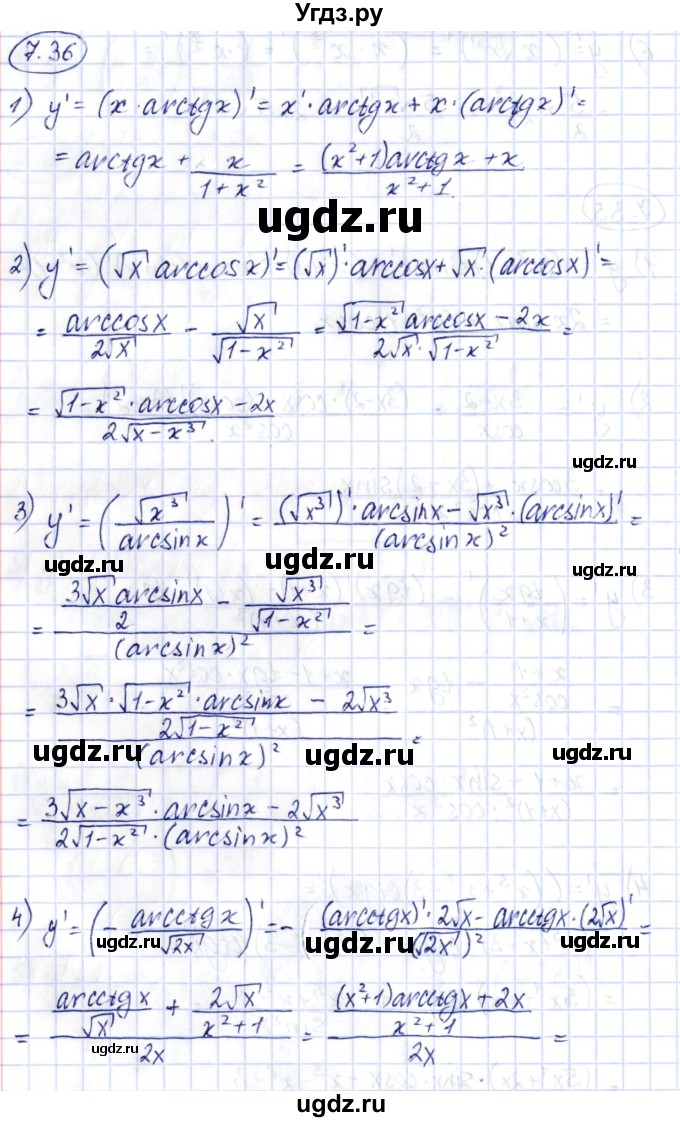 Угдз.ру
7.36
1) y' = (x · arctgx)' = x' · arctgx + x · (arctgx)' =
= arctgx + x/(1 + x²) = ((x²+1)arctgx + x)/(x²+1).
ugdz.ru
2) y' = (√x arccosx)' = (√x)' · arccosx + √x · (arccosx)' =
= arccosx/(2√x) - √x/√(1-x²) = (√(1-x²) arccosx - 2x)/(2√x · √(1-x²)) =
= (√(1-x²) · arccosx - 2x)/(2√(x-x³)).
ugdz.ru
3) y' = (√x³/arcsinx)' = ((√x³)' · arcsinx - √x³ · (arcsinx)')/(arcsinx)² =
ugdz.ru ugdz.ru
= (3√x arcsinx/2 - √x³/√(1-x²))/(arcsinx)² =
= ((3√x · √(1-x²) · arcsinx - 2√x³)/(2√(1-x²)))/(arcsinx)² =
ugdz.ru ugdz.ru
= (3√(x-x³) · arcsinx - 2√x³)/(2√(1-x²) · (arcsinx)²)
4) y' = (- arcctgx/√2x)' = - ((arcctgx)' · 2√x - arcctgx · (2√x)')/(√2x)² =
ugdz.ru ugdz.ru ugdz.ru
= (arcctgx/√x + 2√x/(x²+1))/2x = (((x²+1)arcctgx + 2x)/(x²+1))/2x =
ugdz.ru
ugdz.ru